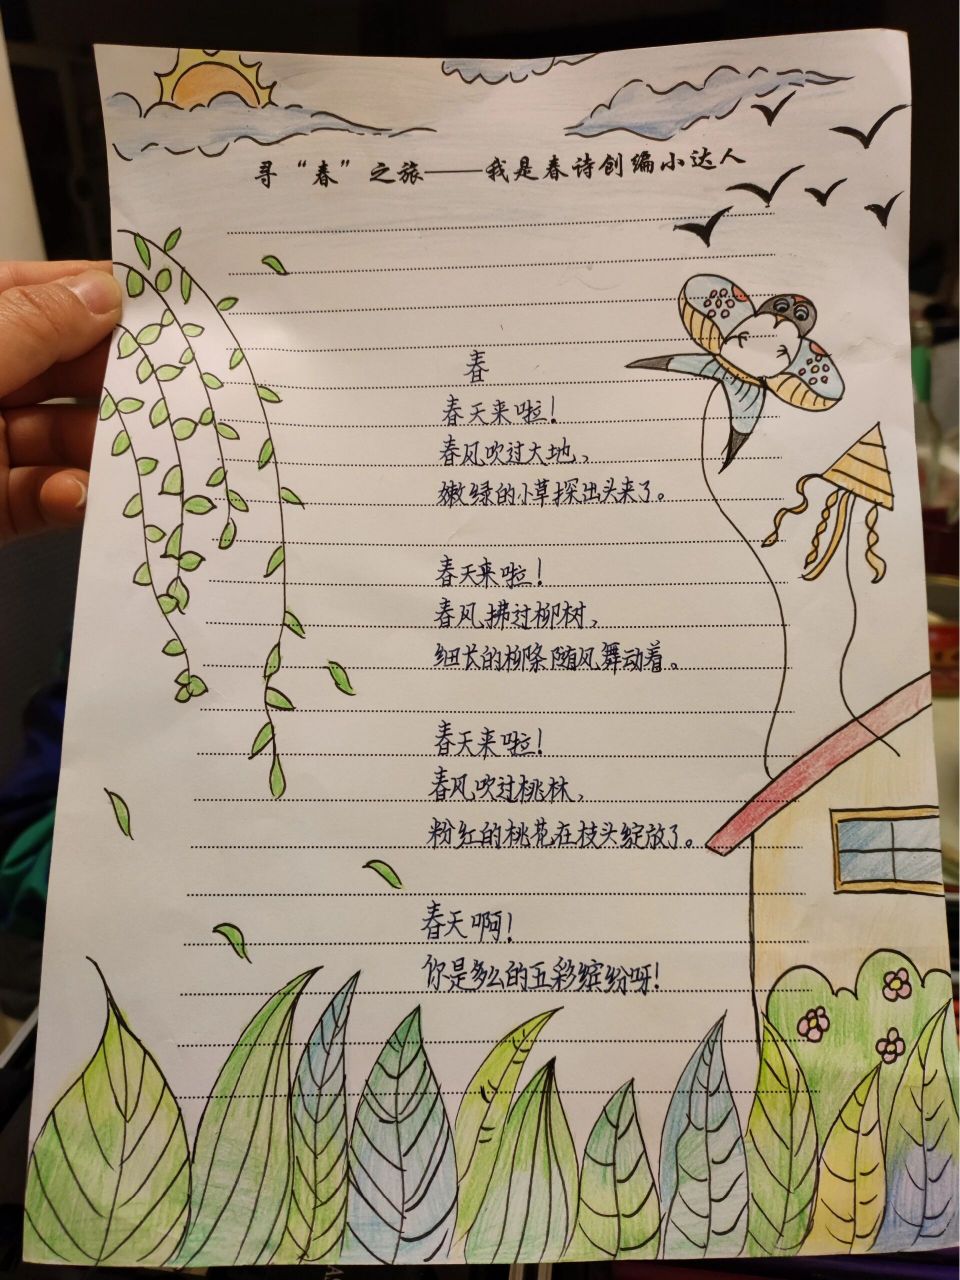 寻“春”之旅——我是春诗创编小达人
春
春天来啦！
春风吹过大地，
嫩绿的小草探出头来了。
春天来啦！
春风拂过柳树，
细长的柳条随风舞动着。
春天来啦！
春风吹过桃林，
粉红的桃花在枝头绽放了。
春天啊！
你是多么的五彩缤纷呀！